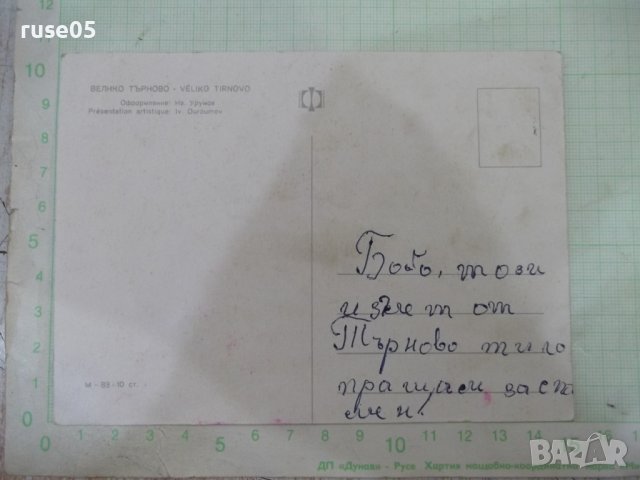 ruse05
ВЕЛИКО ТЪРНОВО - VELIKO TIRNOVO
Оформление: Ив. Урумов
Présentation artistique: Iv. Ouroumov
Бобо, този
изглет от
Търново
пращаш
М - 83 - 10 ст.
12
11
10
9
8
7
6
5
4
3
2
1
0
0 1 2 3 4 5 6 7 8 9 10 11 12 13 14 15
ДП «Дунав» - Русе Хартия мащабно-координатна
BAZAR.bg